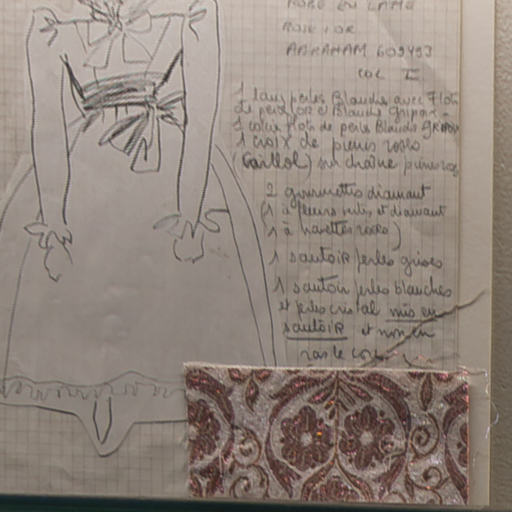 ROBE EN LAMÉ
ROSE ET OR
ABRAHAM 609493
COL I
perles Blanches avec Flots
de perles OR et Blanche Gripoix
1 collier flots de perles Blanches GRIPOIX
1 CROIX de pierres roses
sur chaîne
2 gourmettes diamant
(1 à fleurs et diamant
1 à navettes roses)
1 sautoir perles grises
1 sautoir perles blanches
et perles cristal mis en
sautoir et non en
ras le cou